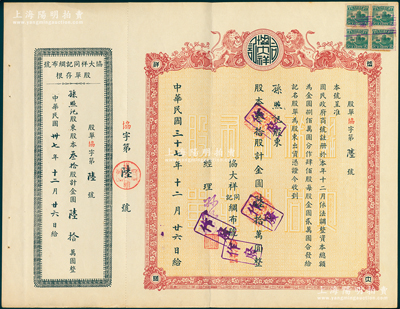 上海陽明拍賣
協大祥同記綢布號
股單存根
股單協字第 陸 號
孫熙 股東股本叁拾股計金圓 陸拾 萬圓整
中華民國 卅七年 十二月 廿六日給
協字第 陸 號
協大祥
股單協字第 陸 號
本號呈准
國民政府 號註冊於本年十二月依法調整資本總額
為金圓捌佰萬圓分作肆佰股每股金圓貳萬圓合發給
記名股單為股東出資憑證今收到
孫熙 股東
股本 拾股計金圓 拾萬圓整
協大祥同記綢布號
經理
中華民國三十七年十二月廿六日給